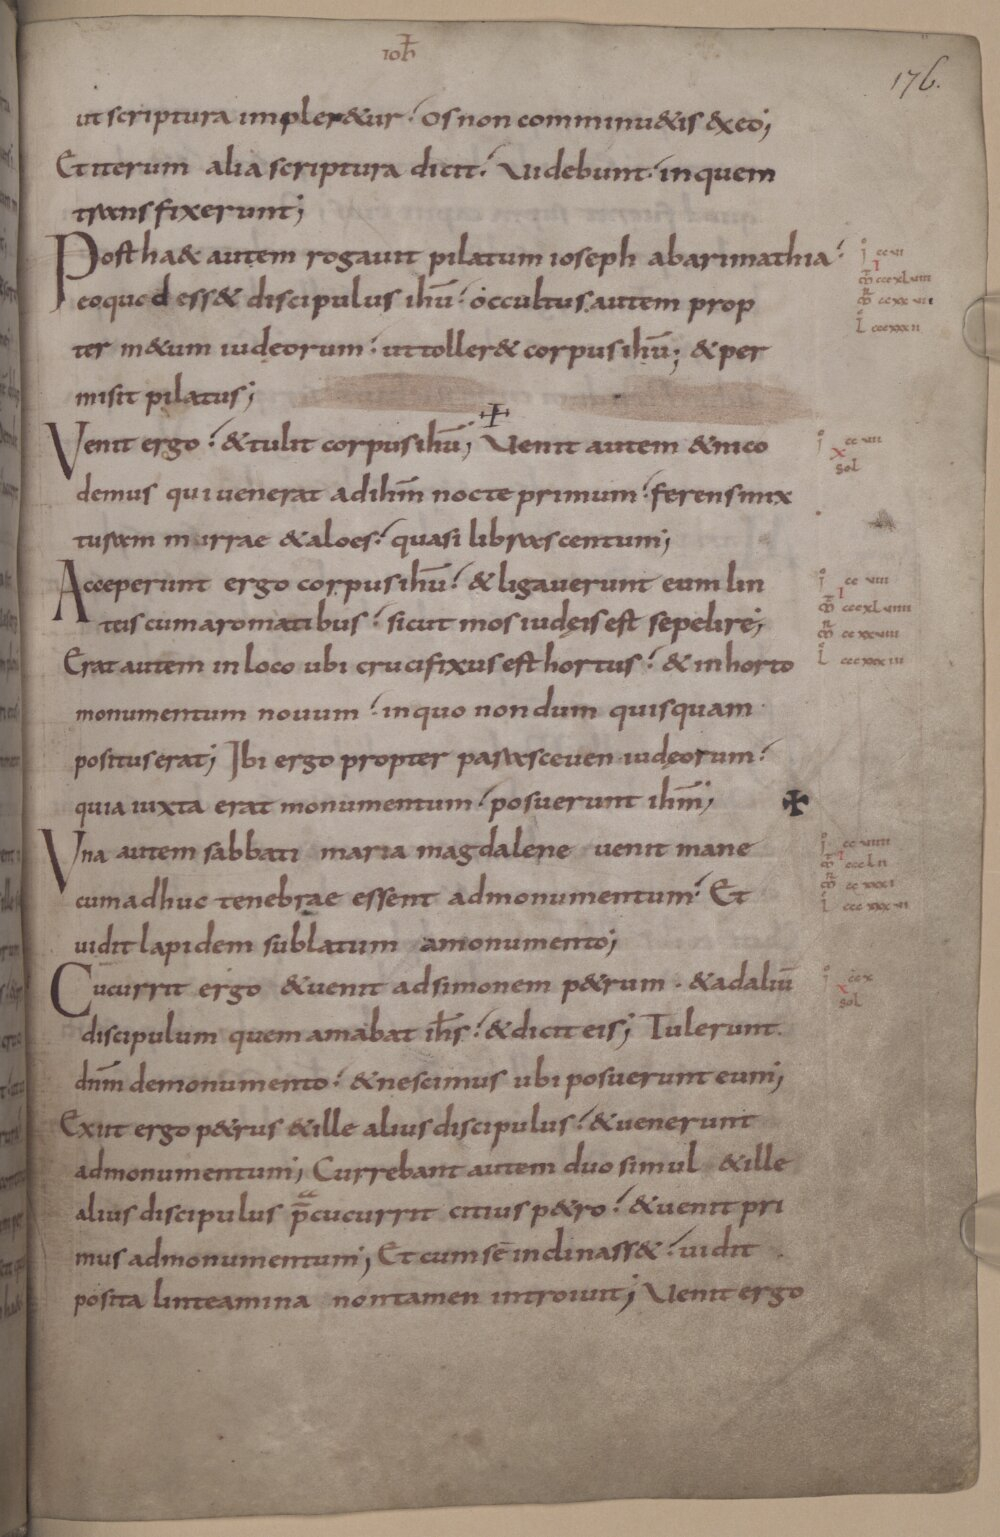 ioh̄
176.
ut scriptura impler&ur. Os non comminu&is &x eo;
Et iterum alia scriptura dicit. Videbunt. in quem
transfixerunt;
Post ha& autem rogauit pilatum ioseph abarimathia.
eo quod ess& discipulus ihū. occultus autem prop
ter m&um iudeorum. ut toller& corpus ihū; & per
misit pilatus;
Venit ergo. & tulit corpus ihū; Venit autem & nico
demus qui uenerat ad ihm̄ nocte primum. ferens mix
turam murrae & aloes. quasi libras centum;
Acceperunt ergo corpus ihū. & ligauerunt eum lin
teis cum aromatibus. sicut mos iudęis est sepelire;
Erat autem in loco ubi crucifixus est hortus. & in horto
monumentum nouum. in quo nondum quisquam
positus erat; Ibi ergo propter parasceuen iudęorum.
quia iuxta erat monumentum. posuerunt ihm̄;
Una autem sabbati maria magdalene uenit mane
cum adhuc tenebrae essent ad monumentum. Et
uidit lapidem sublatum a monumento;
Cucurrit ergo & uenit ad simonem p&rum. & ad aliū
discipulum quem amabat ihs̄. & dicit eis; Tulerunt
dnm̄ de monumento. & nescimus ubi posuerunt eum;
Exiit ergo p&rus & ille alius discipulus. & uenerunt
ad monumentum; Currebant autem duo simul & ille
alius discipulus p̄cucurrit citius p&ro. & uenit pri
mus ad monumentum; Et cum sē inclinass&. uidit
posita linteamina non tamen introiuit; Venit ergo